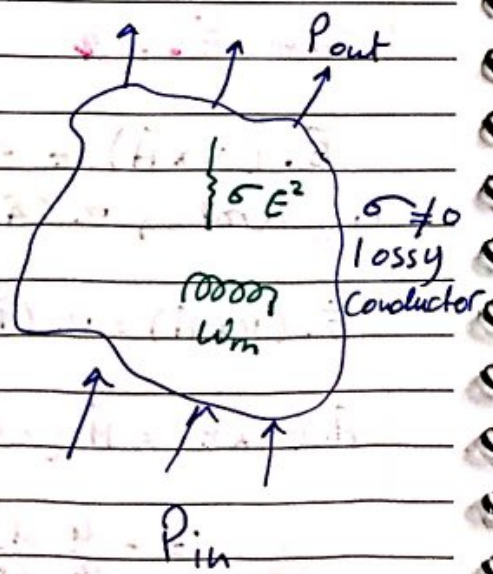 Pout
σ E²
σ ≠ 0
lossy
conductor
Wm
Pin